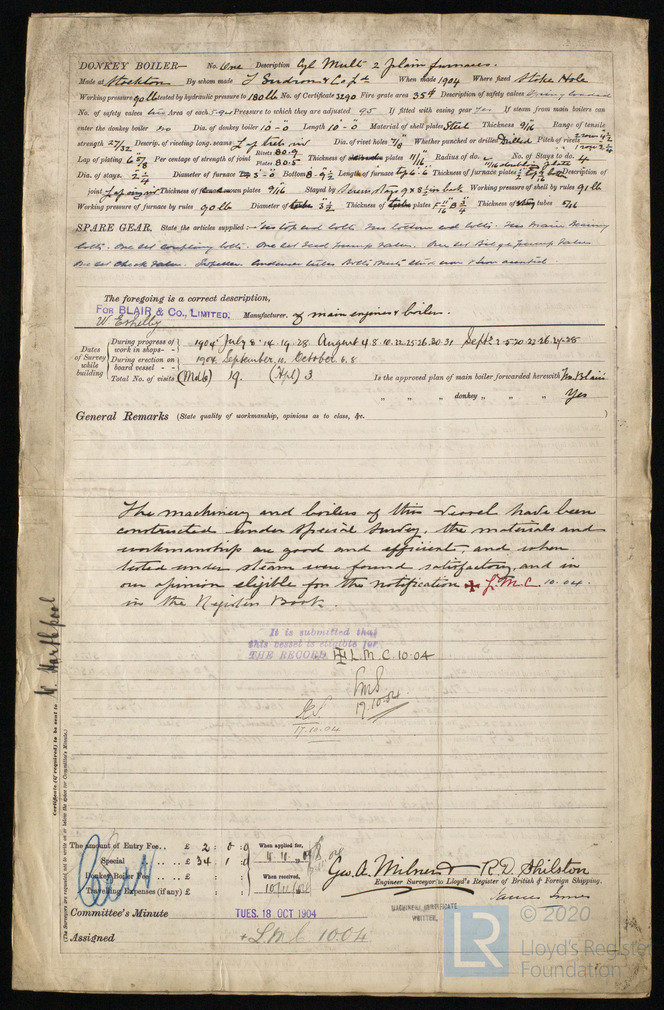 DONKEY BOILER— No. One Description Cyl Mult 2 plain furnaces.
Made at Stockton By whom made & Co Ltd When made 1904 Where fixed Stoke Hole
Working pressure 90 lb tested by hydraulic pressure to 180 lb No. of Certificate 3290 Fire grate area 35 ft Description of safety valves
No. of safety valves two Area of each 5.94 Pressure to which they are adjusted 95 If fitted with easing gear yes If steam from main boilers can
enter the donkey boiler no Dia. of donkey boiler 10-0 Length 10-0 Material of shell plates Steel Thickness 9/16 Range of tensile
strength 27/32 Descrip. of riveting long. seams Dia. of rivet holes 7/8 Whether punched or drilled Drilled Pitch of rivets
Lap of plating Per centage of strength of joint Rivets 80.9 Plates 80.5 Thickness of plates 11/16 Radius of do. No. of Stays to do. 4
Dia. of stays. 2 1/4 Diameter of furnace Top 3-0 Bottom Length of furnace top 6.6 Thickness of furnace plates Description of
joint Thickness of plates 9/16 Stayed by Working pressure of shell by rules 91 lb
Working pressure of furnace by rules 90 lb Diameter of 3 1/2 Thickness of plates Thickness of tubes 5/16
SPARE GEAR. State the articles supplied:— Two top end bolts. Two bottom end bolts. Two Main Bearing
bolts. One set coupling bolts. One set Feed pump valves. One set Bilge pump valves
One set Check valves. Propeller Condenser tubes Bolts Nuts
The foregoing is a correct description,
FOR BLAIR & CO., LIMITED. Manufacturer. of main engines & boilers.
W Eshelby
Dates of Survey while building
During progress of work in shops - - 1904 July 8 14 19 28 August 4 8 10 12 25 26 30 31 Septr 2 5 20 22 26 27 28
During erection on board vessel - - 1904 September 12 October 6. 8
Total No. of visits (Mdb) 19. (Hpl) 3 Is the approved plan of main boiler forwarded herewith
" " " donkey " " " Yes
General Remarks (State quality of workmanship, opinions as to class, &c. )
The machinery and boilers of this vessel have been
constructed under special survey, the materials and
workmanship are good and efficient, and when
tested under steam were found satisfactory, and in
our opinion eligible for the notification ✠ L.M.C 10.04.
in the Register Book.
It is submitted that
this vessel is eligible for
THE RECORD ✠ L.M.C. 10.04
17.10.04
17.10.04
Certificate (if required) to be sent to W. Hartlepool
(The Surveyors are requested not to write on or below the space for Committee's Minute.)
The amount of Entry Fee.. £ 2 : 0 : 0 When applied for,
Special .. .. £ 34 : 1 : 0
Donkey Boiler Fee .. .. £ : : When received,
Travelling Expenses (if any) £ : :
Geo. A. Milner & R. D. Shilston
Engineer Surveyor to Lloyd's Register of British & Foreign Shipping.
James Jones
Committee's Minute TUES. 18 OCT 1904
MACHINERY CERTIFICATE
WRITTEN.
Assigned + L M C 10.04
© 2020
LR
Lloyd's Register
Foundation